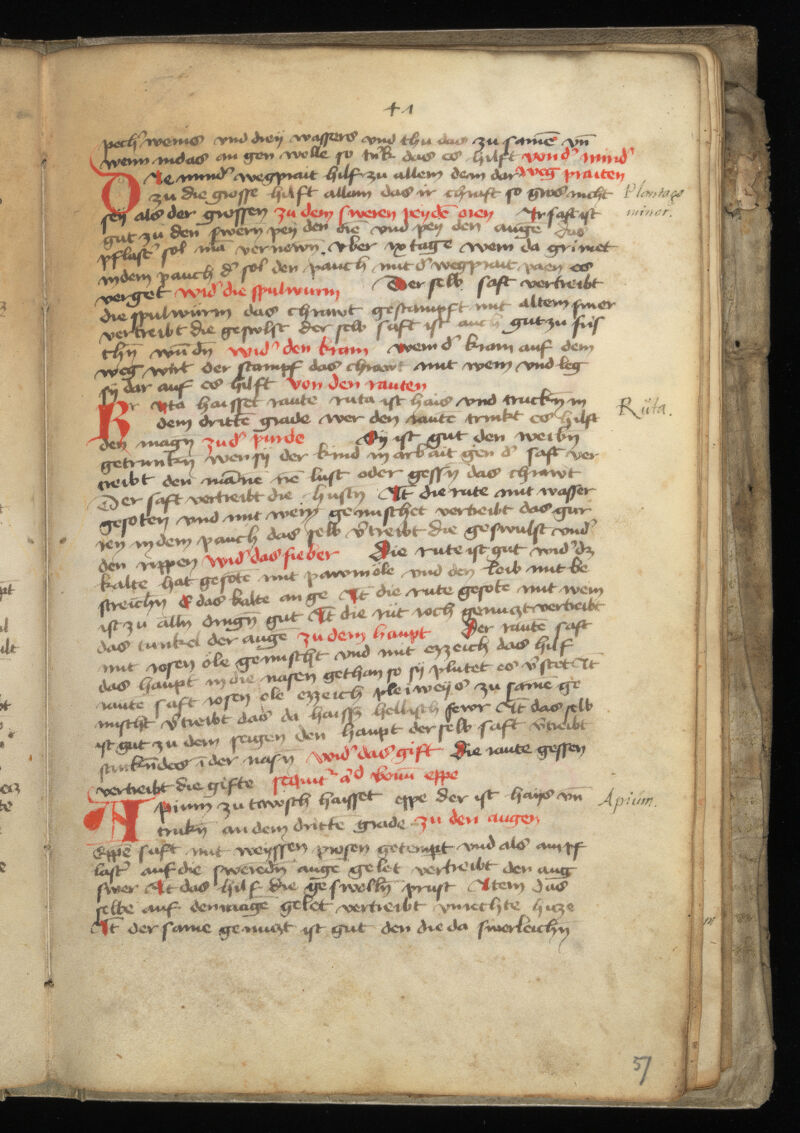 41
pech wenis vnd dreÿ wassers vnd thu das zu samē vn̄
wenn indas au gen welle so trīk das es hilft von dʾ mindʾ
Die mindʾ wegprait hilf zu allem dem dar weg praiten
zu die grosse hilft allain das ir chraft so gros nicht
seÿ als der grossen zu dem sweren peÿ dē orn Ir saft ist
gut zu den swern peÿ den die vnd peÿ den auge das
pflastʾ sol mā vernewn vber ix tage wem da grimet
in dem pauch dʾ sol den pauch mit dʾ wegprait paen es
verget widʾ die spulwurm Der selb saft vertreibt
die spulwürm das chrawt gestampft mit altem smer
vertreibt die geswlst der selb saft ist auch gut zu fris
chn̄ wu̅dn̄ widʾ den kram wem dʾ kram auf dem
weg wirt der stampf das chrawt mit wein vnd leg
sÿ dar auf es hilft von den rauten
Rvta haisset raute ruta ist hais vnd truckn̄ in
dem drittē grade wer den raute trinkt es hilft
den magn̄ zu dʾ purde Sÿ ist gut den weibn̄
getrunkn̄ wen sÿ der kind in arbait gen dʾ saft ver
treibt den mānne ire lust oder gessn̄ das chrawt
Der saft vertreibt die husten It die rute mit wasser
gesoten vnd mit wein gemischet vertreibt das gur
ren in dem pauch das selb vʾtreibt die geswulst vnd
den rippen widʾ das fieber Die rute ist gut widʾ dz
kalte hat gesotē mit pawmöle vnd den leib mit be
streichn̄ E das kalte an ge It die rute gesotē mit wein
ist zu alln̄ dingn̄ gut It die rüt roch genuczt vertreibt
das tunkel der auge zu dem haupt Der raute saft
mit rosen öle gemischt vnd mit ezzeich das hilf
das haupt in die nasen gethan so sÿ plutet es vʾstet It
raute saft rosen öle ezzeich pleiweÿs zu samē ge
mischt vʾtreibt das da haissz hellisch fewr It das selb
ist gut zu dem seigen den haupt der selb saft vʾtreibt
stinkn̄des ī der nasn̄ widʾ das gift Die raute gessen
vertreibt die gifte sequitʾ eppe
Apium zu tewtsch haisset eppe der ist hays vn̄
trukn̄ an dem drittē grade zu den augen
Eppē saft mit weyssen prosen getempt vnd als ain pf
lastʾ auf die sweredn̄ auge gelet vertreibt den aug
swer It das hilf die geswelln̄ prust Item das
selbe auf den mage gelet vertreibt vnrechte hicze
It der same genuczt ist gut den die da swerleichn̄
Plantago
minor.
Rüta.
Apium.
57